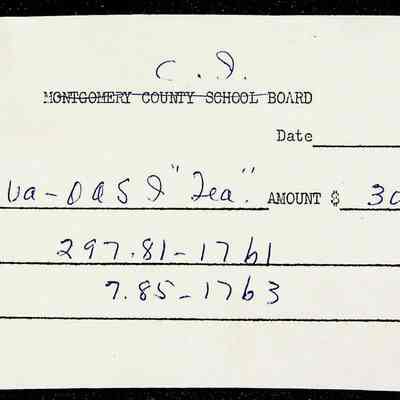 C. I.
MONTGOMERY COUNTY SCHOOL BOARD
Date
Va-OASI "Tea". AMOUNT $ 30
297.81-1761
7.85-1763